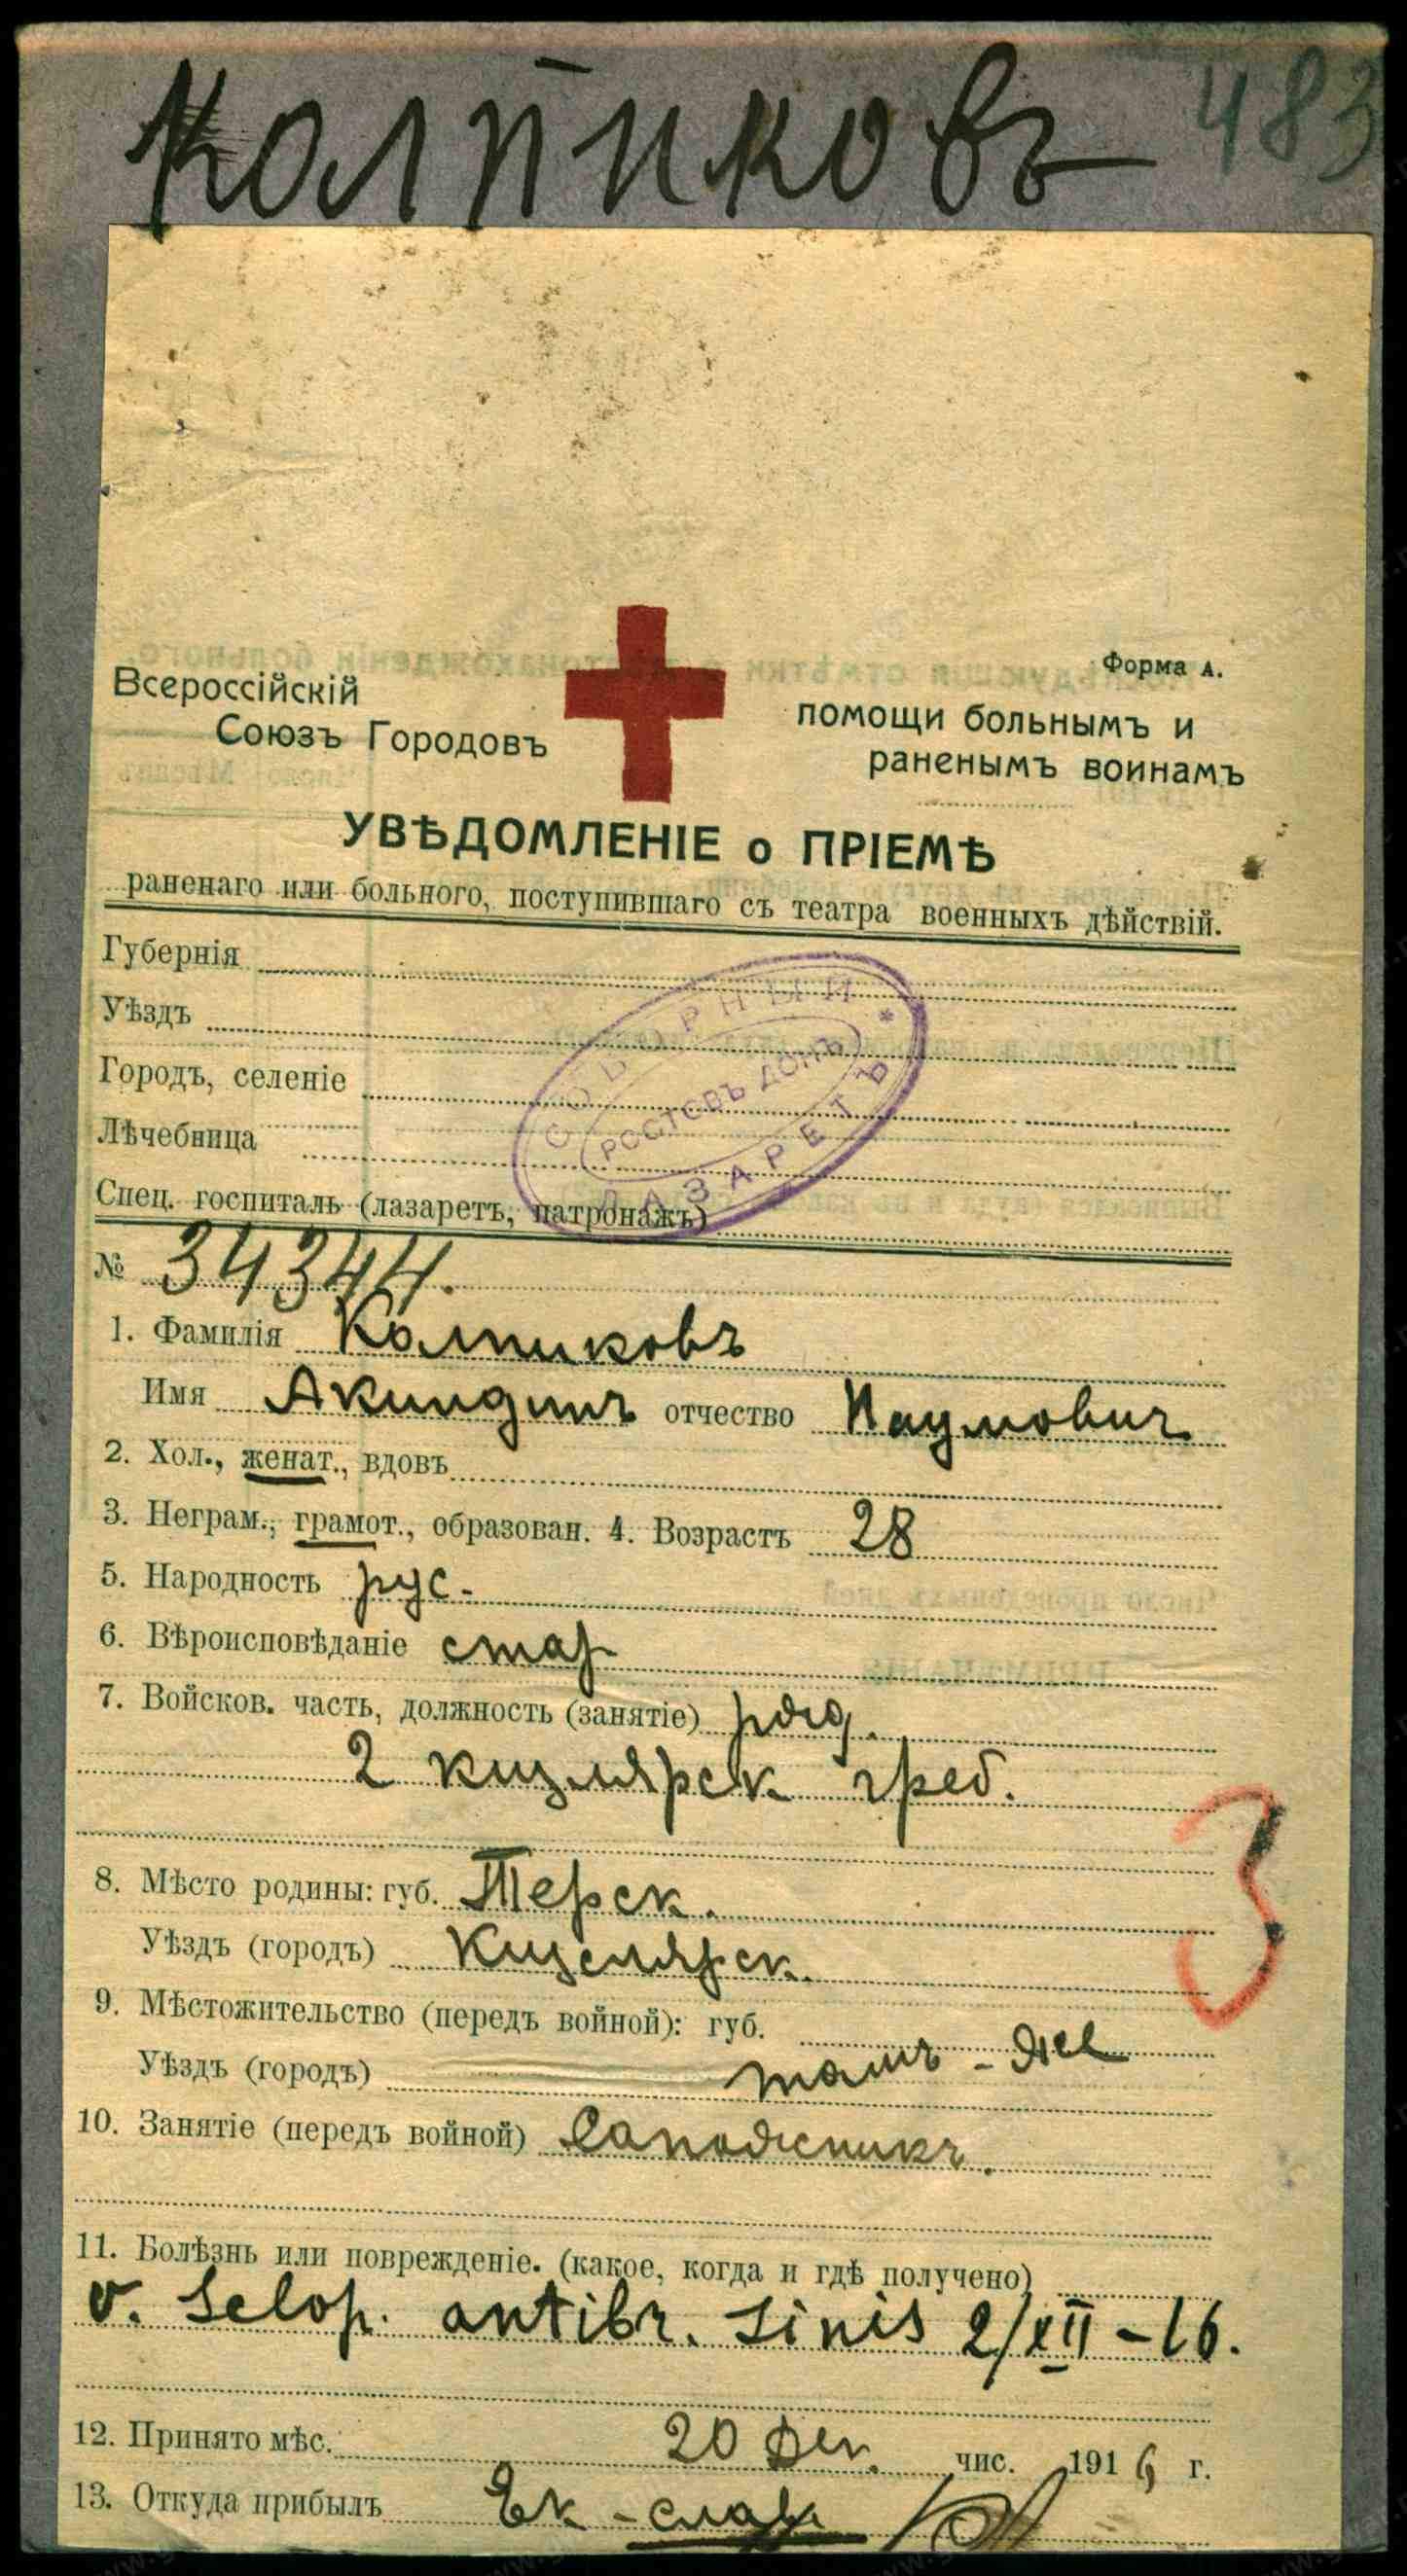 Колпиковъ 483
Форма А.
Всероссійскій
Союзъ Городовъ
помощи больнымъ и
раненымъ воинамъ
УВѢДОМЛЕНІЕ о ПРІЕМѢ
раненаго или больного, поступившаго съ театра военныхъ дѣйствій.
Губернія
Уѣздъ
Городъ, селеніе
Лѣчебница
Спец. госпиталь (лазаретъ, патронажъ)
СОБОРНЫЙ
РОСТОВЪ ДОНЪ
ЛАЗАРЕТЪ *
№ 34344.
1. Фамилія Колпиковъ
Имя Акиндинъ отчество Наумович
2. Хол., женат., вдовъ
3. Неграм., грамот., образован. 4. Возрастъ 28
5. Народность рус.
6. Вѣроисповѣданіе стар
7. Войсков. часть, должность (занятіе) ряд.
2 Кизлярск греб.
3
8. Мѣсто родины: губ. Терск.
Уѣздъ (городъ) Кизлярск.
9. Мѣстожительство (передъ войной): губ.
Уѣздъ (городъ) тамъ-же
10. Занятіе (передъ войной) Сапожникъ.
11. Болѣзнь или поврежденіе. (какое, когда и гдѣ получено)
v. Sclop. antibr. sinis 2/XII-16.
12. Принято мѣс. 20 Дек. чис. 1916 г.
13. Откуда прибылъ Ек-слав